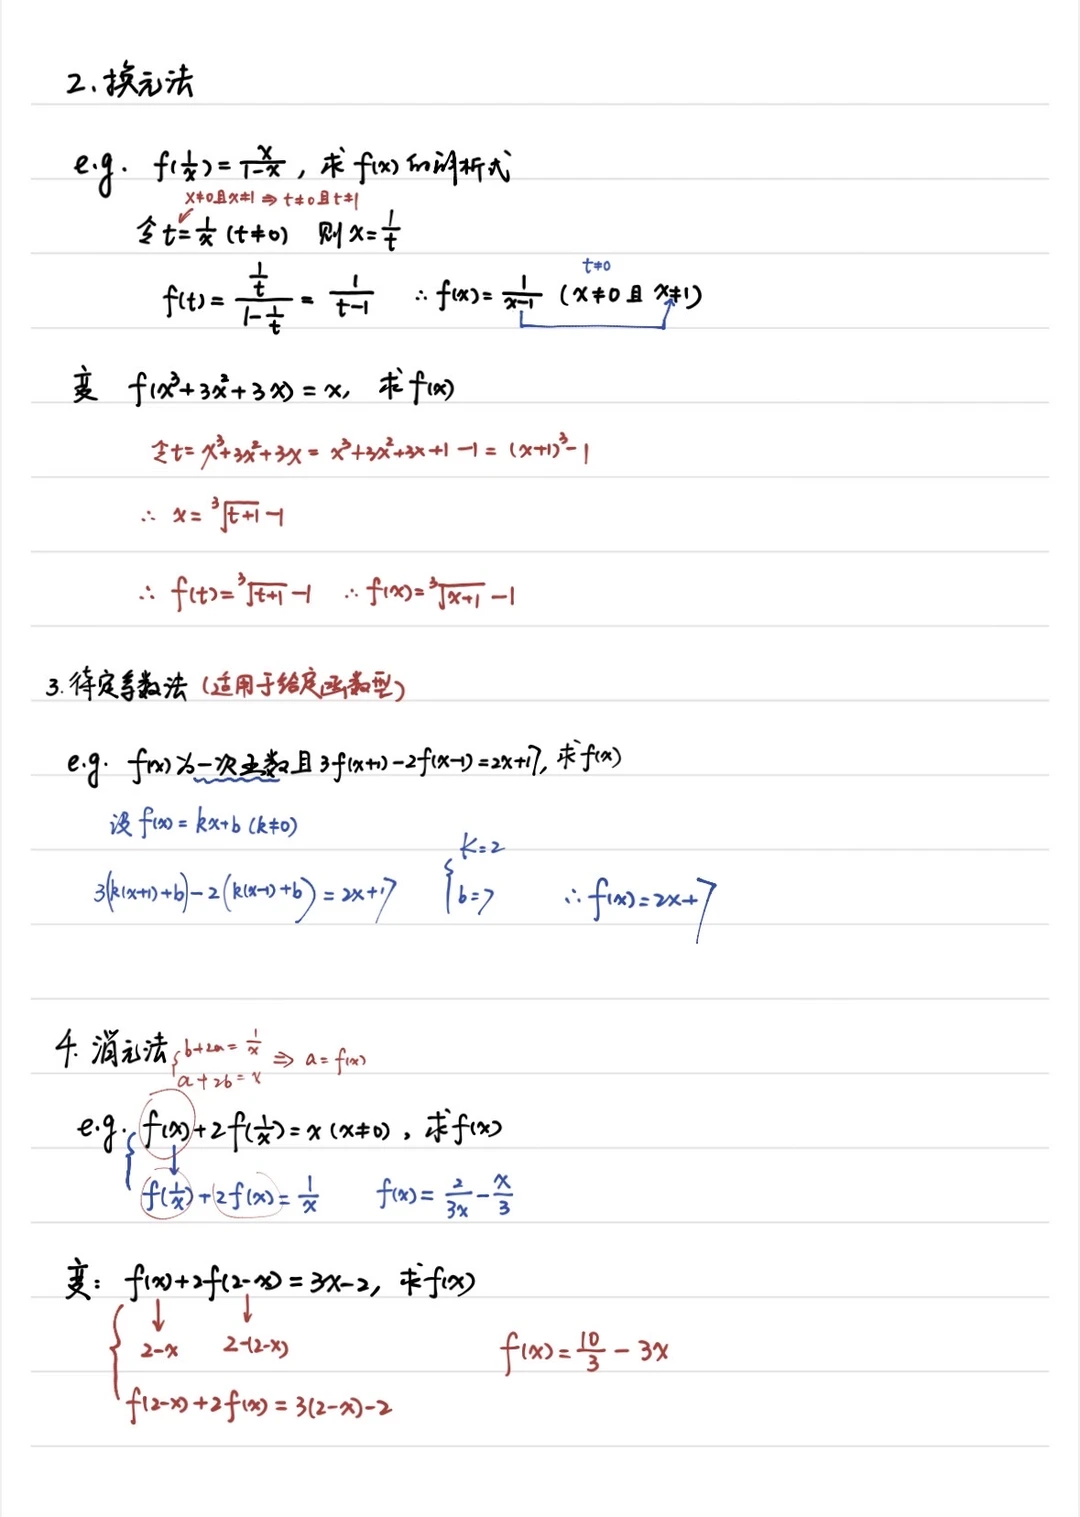 2、换元法
e.g. f(1/x) = x/(1-x)，求f(x)的解析式
x≠0且x≠1 ⇒ t≠0且t≠1
令t=1/x (t≠0) 则x=1/t
t≠0
f(t) = (1/t)/(1-1/t) = 1/(t-1) ∴ f(x) = 1/(x-1) (x≠0且x≠1)
变 f(x³+3x²+3x)=x，求f(x)
令t=x³+3x²+3x = x³+3x²+3x+1-1 = (x+1)³-1
∴ x=³√(t+1) -1
∴ f(t)=³√(t+1) -1 ∴ f(x)=³√(x+1) -1
3.待定系数法（适用于给定函数型）
e.g. f(x)为一次函数且3f(x+1)-2f(x-1)=2x+17, 求f(x)
设f(x)=kx+b (k≠0)
3(k(x+1)+b)-2(k(x-1)+b)=2x+17 { k=2 b=7 ∴ f(x)=2x+7
4. 消元法 { b+2a=1/x a+2b=x ⇒ a=f(x)
e.g. f(x)+2f(1/x)=x (x≠0)，求f(x)
f(1/x)+2f(x)=1/x f(x)=2/(3x) - x/3
变：f(x)+2f(2-x)=3x-2，求f(x)
2-x 2-(2-x) f(x)=10/3 - 3x
f(2-x)+2f(x)=3(2-x)-2